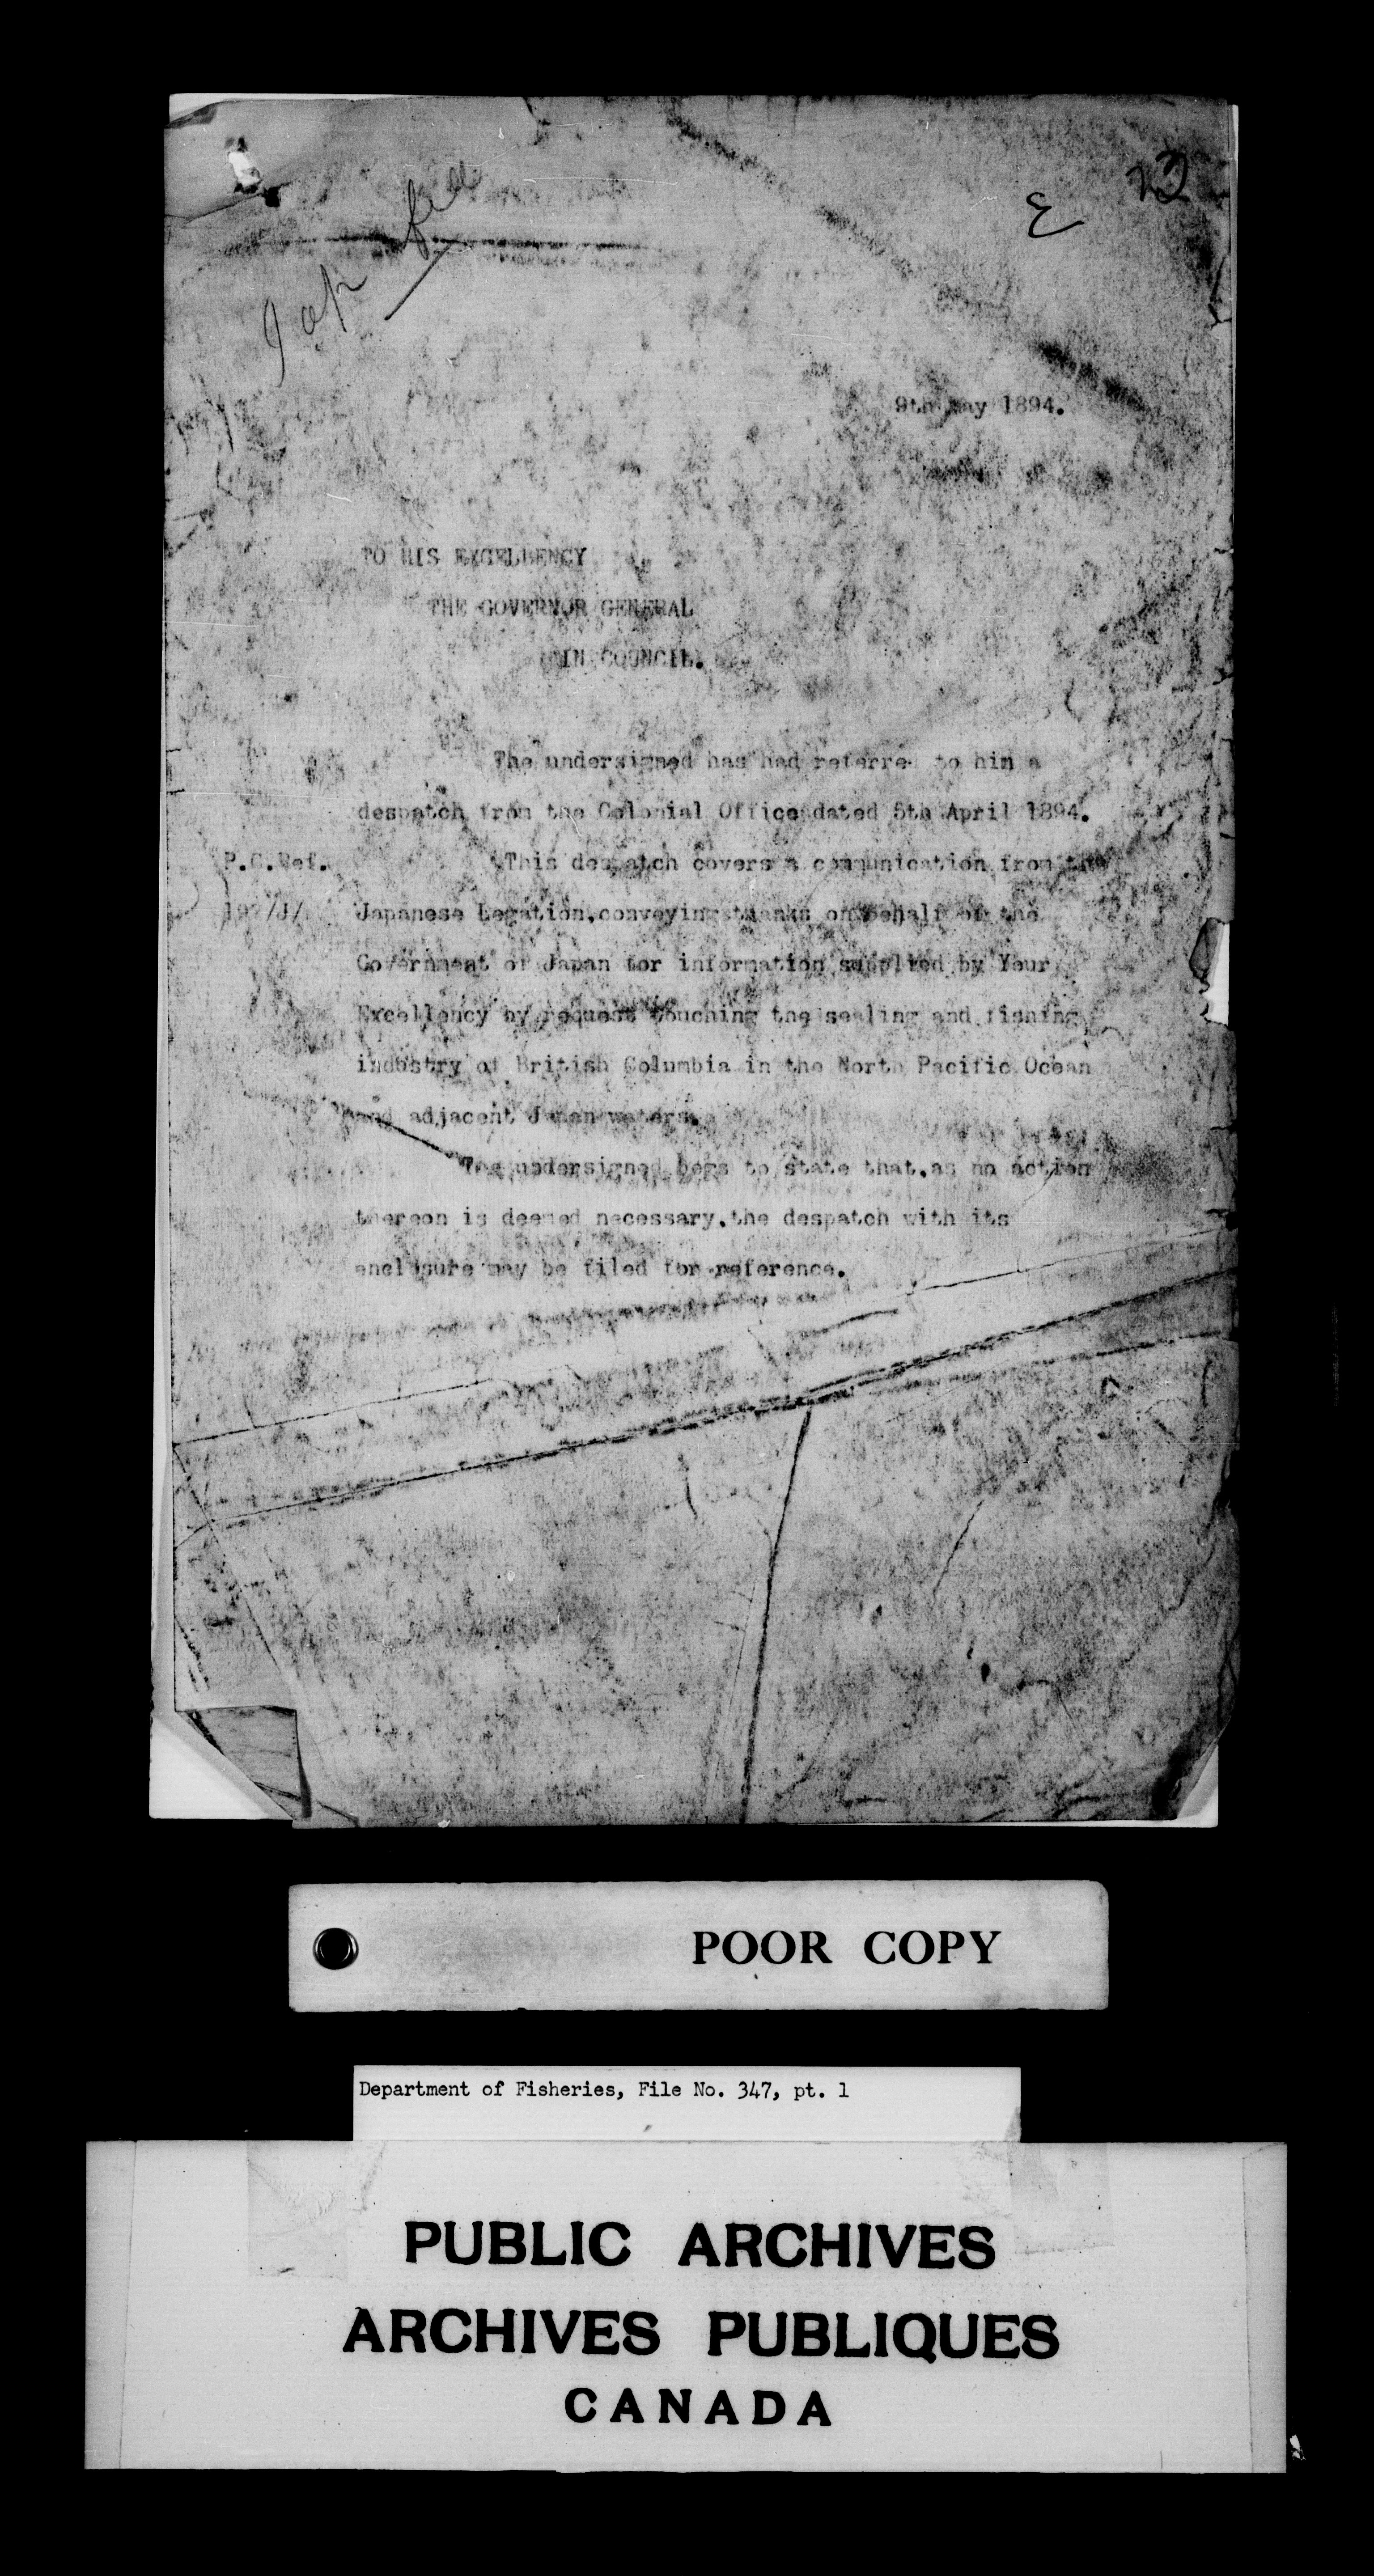 E
9th May 1894.
TO HIS EXCELLENCY
THE GOVERNOR GENERAL
IN COUNCIL.
The undersigned has had referred to him a
despatch from the Colonial Office dated 5th April 1894.
P.C.Ref. This despatch covers a communication from the
Japanese Legation,conveying thanks on behalf of the
Government of Japan for information supplied by Your
Excellency by request touching the sealing and fishing
industry of British Columbia in the North Pacific Ocean
and adjacent Japan waters.
The undersigned begs to state that,as no action
thereon is deemed necessary,the despatch with its
enclosure may be filed for reference.
POOR COPY
Department of Fisheries, File No. 347, pt. 1
PUBLIC ARCHIVES
ARCHIVES PUBLIQUES
CANADA